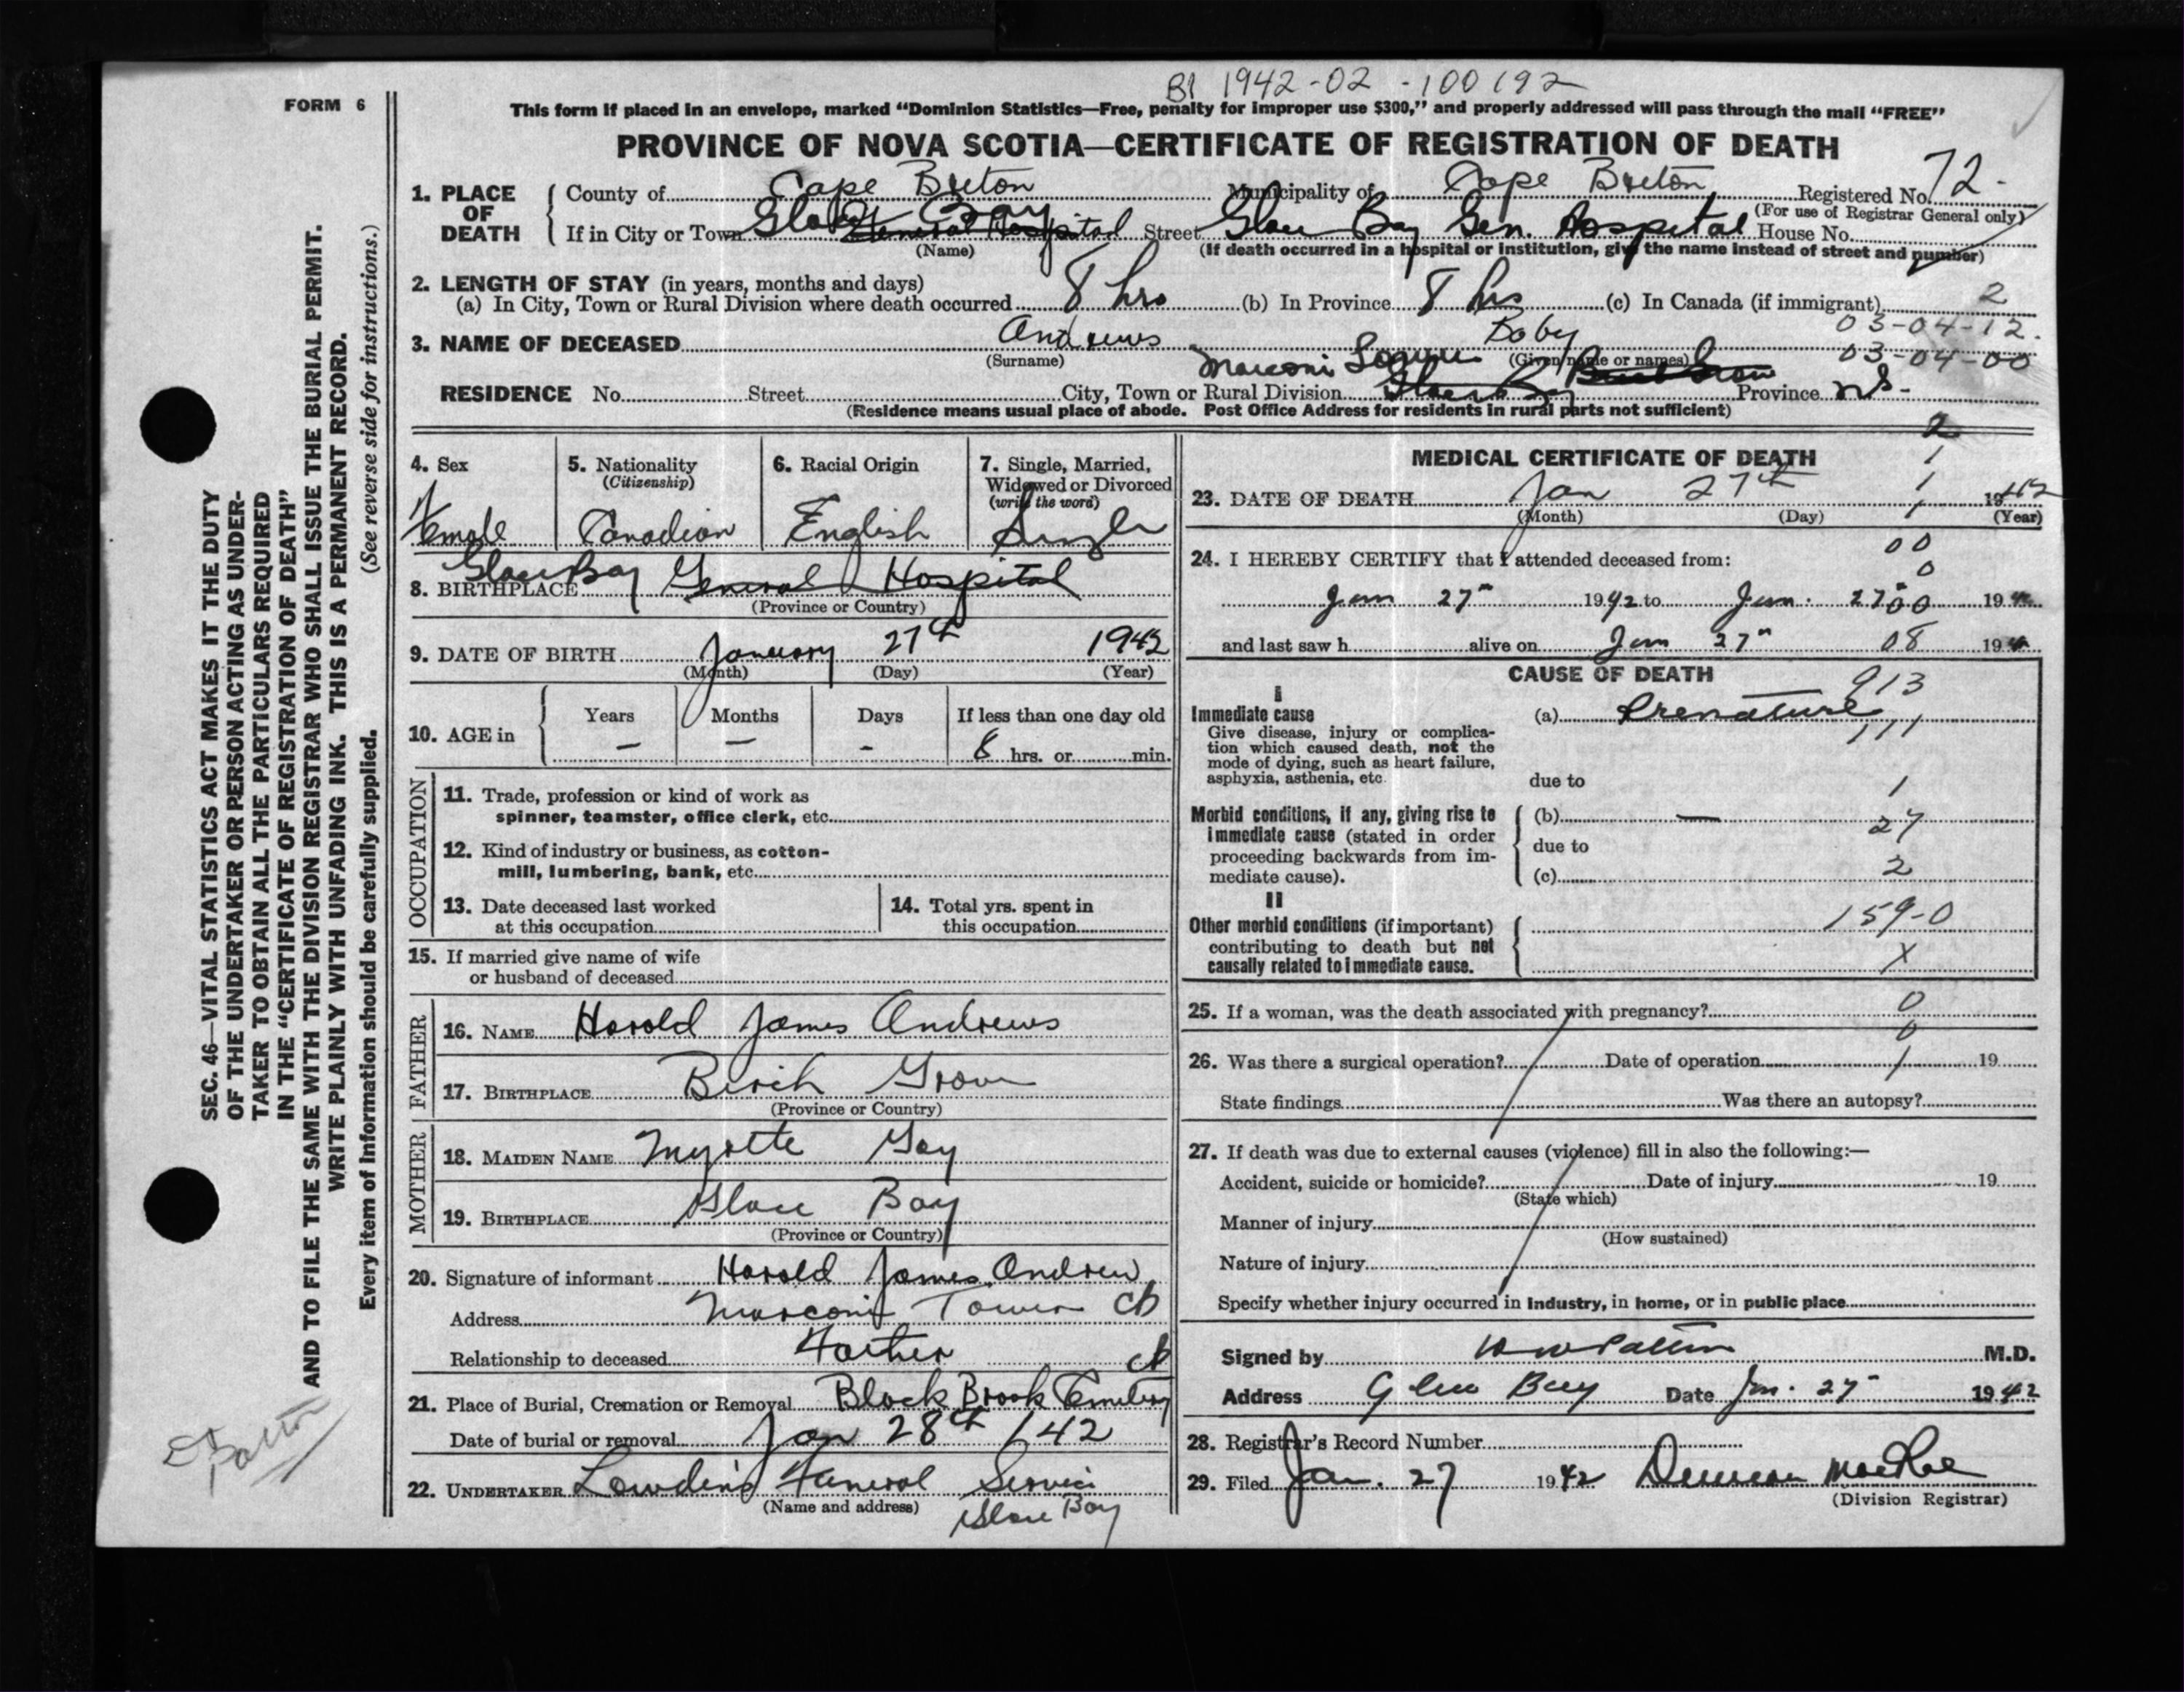 B1 1942-02-100192
FORM 6
This form if placed in an envelope, marked “Dominion Statistics—Free, penalty for improper use $300,” and properly addressed will pass through the mail “FREE”
PROVINCE OF NOVA SCOTIA—CERTIFICATE OF REGISTRATION OF DEATH
1. PLACE OF DEATH
County of Cape Breton Municipality of Cape Breton Registered No. 72.
(For use of Registrar General only)
If in City or Town Glace Bay General Hospital Street Glace Bay Gen. Hospital House No.
(Name) (If death occurred in a hospital or institution, give the name instead of street and number)
2. LENGTH OF STAY (in years, months and days)
(a) In City, Town or Rural Division where death occurred 8 hrs (b) In Province 8 hrs (c) In Canada (if immigrant) 2
03-04-12.
3. NAME OF DECEASED Andrews Baby
(Surname) (Given name or names) 03-04-00
Marconi Towers
RESIDENCE No. Street City, Town or Rural Division Glace Bay Birch Grove Province N.S.
(Residence means usual place of abode. Post Office Address for residents in rural parts not sufficient)
4. Sex Female
5. Nationality (Citizenship) Canadian
6. Racial Origin English
7. Single, Married, Widowed or Divorced (write the word) Single
8. BIRTHPLACE Glace Bay General Hospital
(Province or Country)
9. DATE OF BIRTH January 27th 1942
(Month) (Day) (Year)
10. AGE in Years — Months — Days - If less than one day old 8 hrs. or min.
OCCUPATION
11. Trade, profession or kind of work as
spinner, teamster, office clerk, etc.
12. Kind of industry or business, as cotton-
mill, lumbering, bank, etc.
13. Date deceased last worked
at this occupation
14. Total yrs. spent in
this occupation
15. If married give name of wife
or husband of deceased
FATHER
16. NAME Harold James Andrews
17. BIRTHPLACE Birch Grove
(Province or Country)
MOTHER
18. MAIDEN NAME Myrtte Gay
19. BIRTHPLACE Glace Bay
(Province or Country)
20. Signature of informant Harold James Andrew
Address Marconi Tower CB
Relationship to deceased Father
21. Place of Burial, Cremation or Removal Black Brook Cemetery CB
Date of burial or removal Jan 28th /42
22. UNDERTAKER Lowden's Funeral Service
(Name and address) Glace Bay
MEDICAL CERTIFICATE OF DEATH
2
1
1
1
23. DATE OF DEATH Jan 27th 1942
(Month) (Day) (Year)
00
0
24. I HEREBY CERTIFY that I attended deceased from:
Jan 27" 1942 to Jan. 27" 00 19
and last saw h alive on Jan 27" 08 19
CAUSE OF DEATH
913
I
Immediate cause
Give disease, injury or complica-
tion which caused death, not the
mode of dying, such as heart failure,
asphyxia, asthenia, etc.
(a) Premature
111
due to 1
Morbid conditions, if any, giving rise to
immediate cause (stated in order
proceeding backwards from im-
mediate cause).
(b) — 27
due to
(c) 2
II
Other morbid conditions (if important)
contributing to death but not
causally related to immediate cause.
159-0
X
25. If a woman, was the death associated with pregnancy? 0
0
26. Was there a surgical operation? Date of operation 1 19
State findings Was there an autopsy?
27. If death was due to external causes (violence) fill in also the following:—
Accident, suicide or homicide? Date of injury 19
(State which)
Manner of injury
(How sustained)
Nature of injury
Specify whether injury occurred in industry, in home, or in public place
Signed by Patton M.D.
Address Glace Bay Date Jan. 27" 1942
28. Registrar's Record Number
29. Filed Jan. 27 1942 Duncan MacRae
(Division Registrar)
SEC. 46—VITAL STATISTICS ACT MAKES IT THE DUTY
OF THE UNDERTAKER OR PERSON ACTING AS UNDER-
TAKER TO OBTAIN ALL THE PARTICULARS REQUIRED
IN THE “CERTIFICATE OF REGISTRATION OF DEATH”
AND TO FILE THE SAME WITH THE DIVISION REGISTRAR WHO SHALL ISSUE THE BURIAL PERMIT.
WRITE PLAINLY WITH UNFADING INK. THIS IS A PERMANENT RECORD.
Every item of Information should be carefully supplied. (See reverse side for instructions.)
Dr Patton